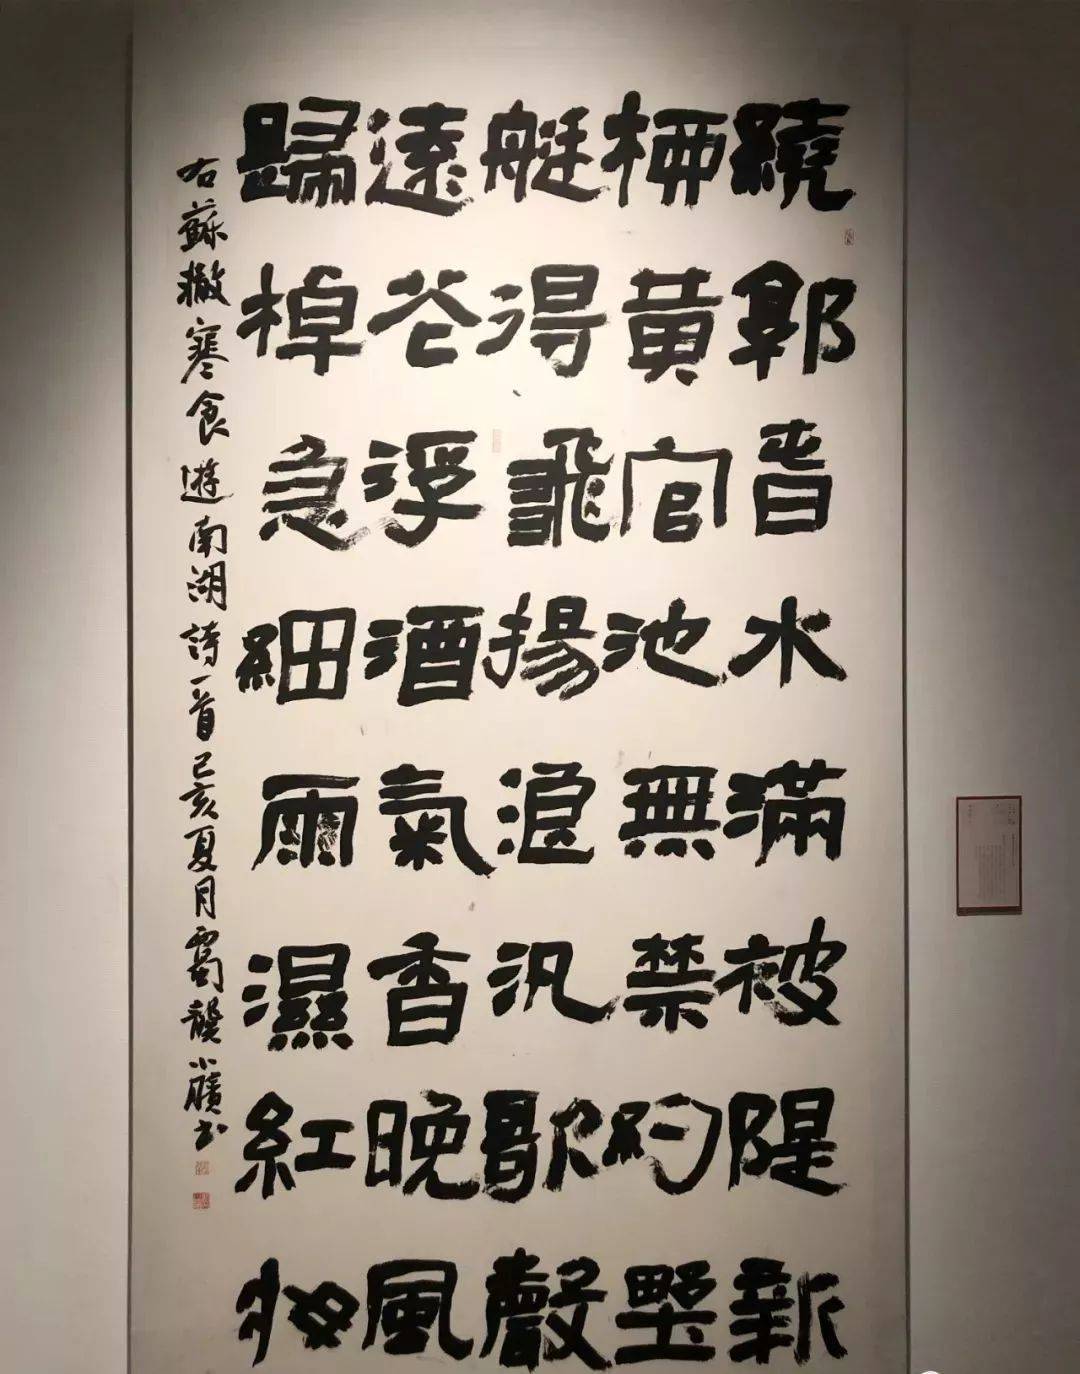 繞郭春水滿被隄新
栁黄官池無禁約墅
艇得飛揚浪汎歌聲
遠花浮酒氣香晚風
歸棹急細雨濕紅妝
右蘇轍寒食遊南湖詩一首己亥夏月蜀龔小臏書